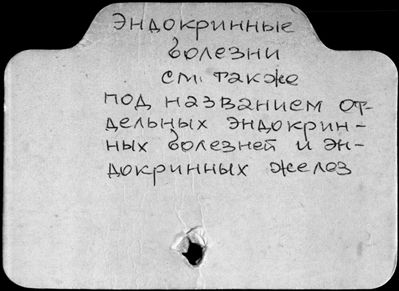 Эндокринные
болезни
см. также
под названием от-
дельных эндокрин-
ных болезней и эн-
докринных желез